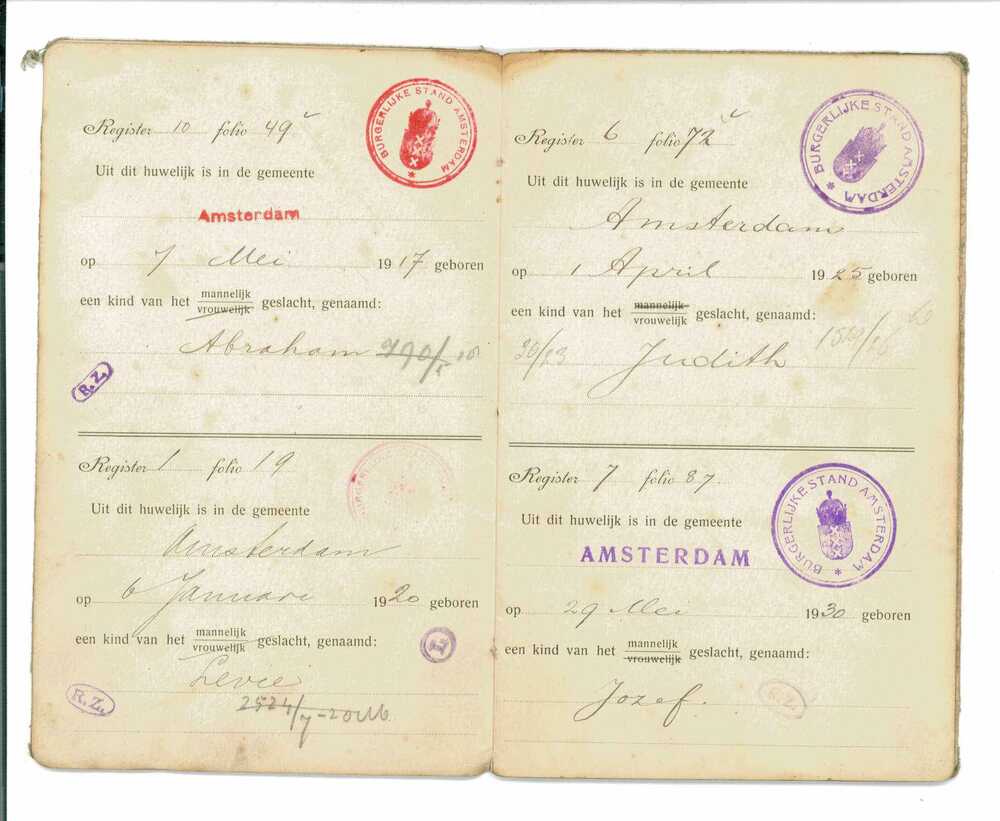 Register 10 folio 49v
BURGERLIJKE STAND AMSTERDAM
Uit dit huwelijk is in de gemeente
Amsterdam
op 7 Mei 1917 geboren
een kind van het mannelijk
vrouwelijk geslacht, genaamd:
Abraham
R.Z.
Register 1 folio 19
Uit dit huwelijk is in de gemeente
Amsterdam
op 6 Januari 1920 geboren
een kind van het mannelijk
vrouwelijk geslacht, genaamd:
Levie
2524/7-20
R.Z.
Register 6 folio 72v
BURGERLIJKE STAND AMSTERDAM
Uit dit huwelijk is in de gemeente
Amsterdam
op 1 April 1925 geboren
een kind van het mannelijk
vrouwelijk geslacht, genaamd:
Judith
Register 7 folio 87.
BURGERLIJKE STAND AMSTERDAM
Uit dit huwelijk is in de gemeente
AMSTERDAM
op 29 Mei 1930 geboren
een kind van het mannelijk
vrouwelijk geslacht, genaamd:
Jozef.
R.Z.